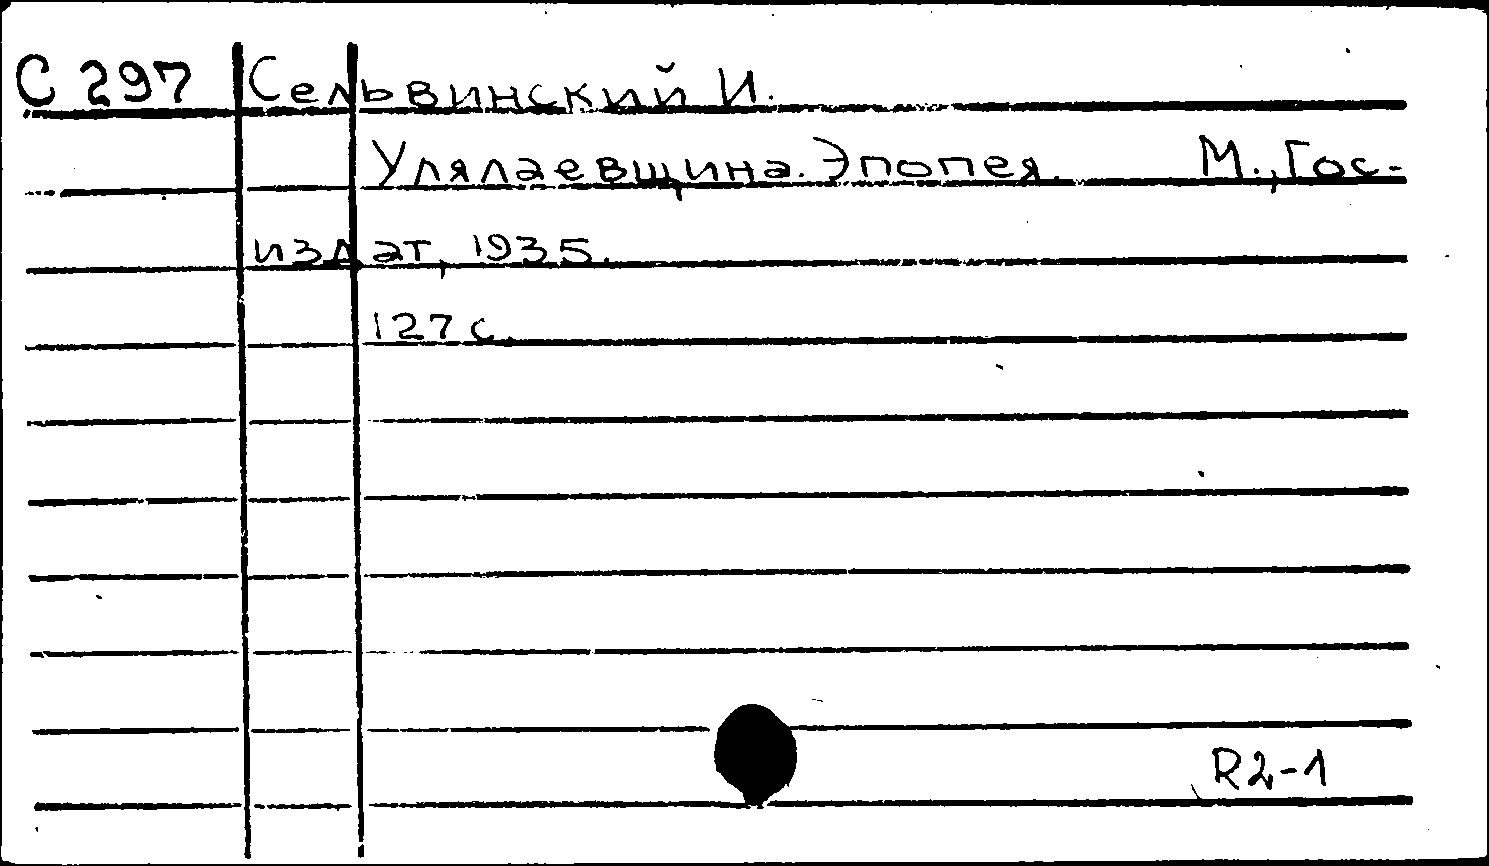 С 297 Сельвинский И.
Улялаевщина. Эпопея. М., Гос-
издат, 1935.
127 с.
R2-1